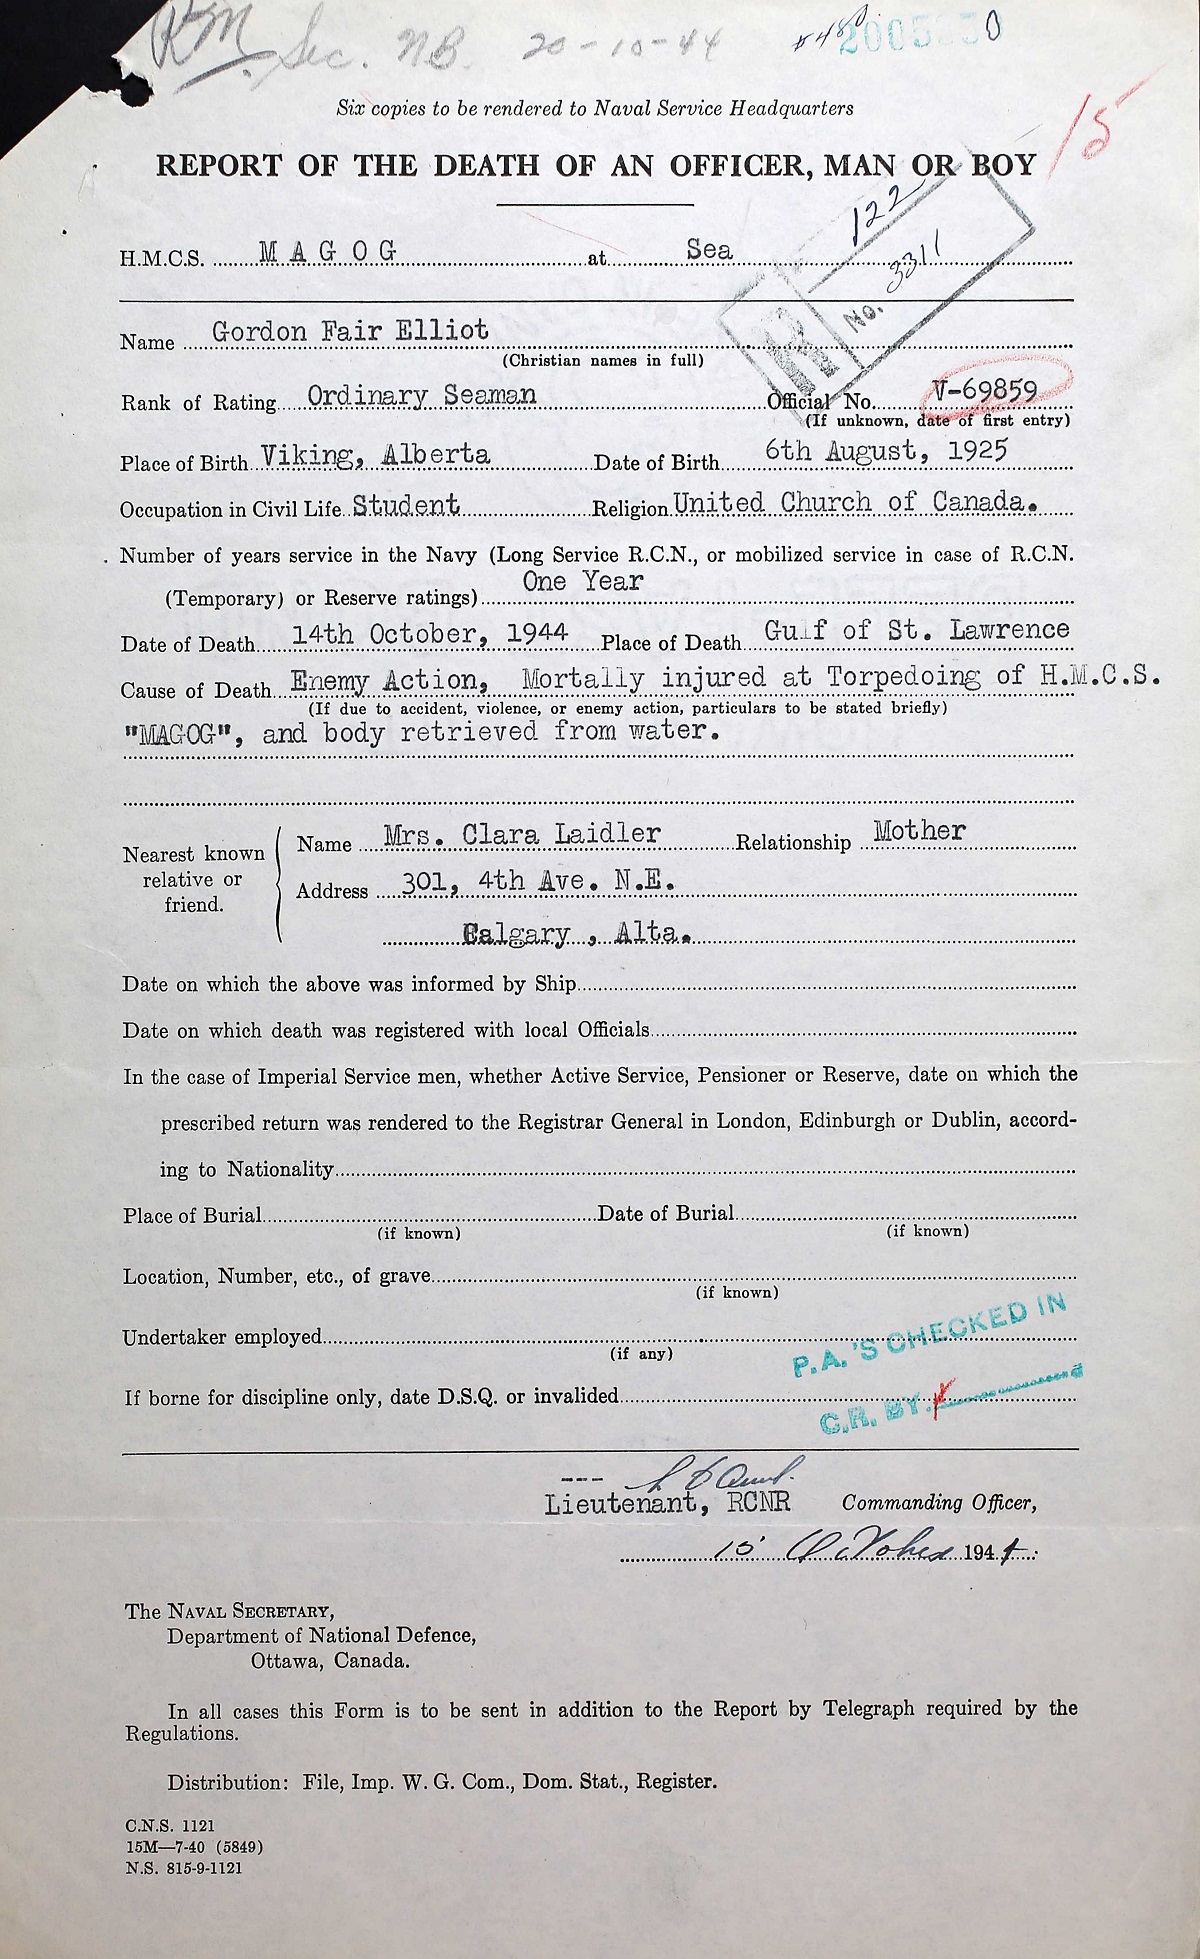 RM Sec. N.B. 20-10-44
Six copies to be rendered to Naval Service Headquarters
15
REPORT OF THE DEATH OF AN OFFICER, MAN OR BOY
122
R No. 3311
H.M.C.S. MAGOG at Sea
Name Gordon Fair Elliot
(Christian names in full)
Rank of Rating Ordinary Seaman Official No. V-69859
(If unknown, date of first entry)
Place of Birth Viking, Alberta Date of Birth 6th August, 1925
Occupation in Civil Life Student Religion United Church of Canada.
Number of years service in the Navy (Long Service R.C.N., or mobilized service in case of R.C.N.
(Temporary) or Reserve ratings) One Year
Date of Death 14th October, 1944 Place of Death Gulf of St. Lawrence
Cause of Death Enemy Action, Mortally injured at Torpedoing of H.M.C.S.
(If due to accident, violence, or enemy action, particulars to be stated briefly)
"MAGOG", and body retrieved from water.
Nearest known relative or friend.
Name Mrs. Clara Laidler Relationship Mother
Address 301, 4th Ave. N.E.
Calgary , Alta.
Date on which the above was informed by Ship
Date on which death was registered with local Officials
In the case of Imperial Service men, whether Active Service, Pensioner or Reserve, date on which the
prescribed return was rendered to the Registrar General in London, Edinburgh or Dublin, accord-
ing to Nationality
Place of Burial Date of Burial
(if known) (if known)
Location, Number, etc., of grave
(if known)
Undertaker employed
(if any)
P.A.'S CHECKED IN
If borne for discipline only, date D.S.Q. or invalided
C.R. BY
---
Lieutenant, RCNR Commanding Officer,
15 October 1944.
The NAVAL SECRETARY,
Department of National Defence,
Ottawa, Canada.
In all cases this Form is to be sent in addition to the Report by Telegraph required by the
Regulations.
Distribution: File, Imp. W. G. Com., Dom. Stat., Register.
C.N.S. 1121
15M—7-40 (5849)
N.S. 815-9-1121